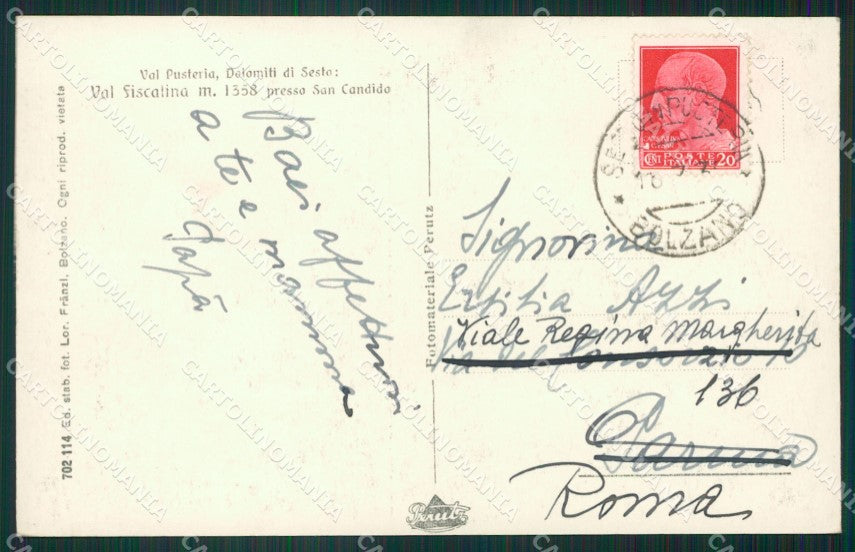 Val Pusteria, Dolomiti di Sesto:
Val Fiscalina m. 1358 presso San Candido
Baci affettuosi
a te e mamma
Papà
702 114 Ed. stab. fot. Lor. Fränzl. Bolzano. Ogni riprod. vietata
Fotomateriale Perutz
Perutz
CENT POSTE 20
ITALIANE
BOLZANO
Signorina
Ersilia Azzi
Viale Regina Margherita
Via del Consorzio
136
Parma
Roma
CARTOLINOMANIA